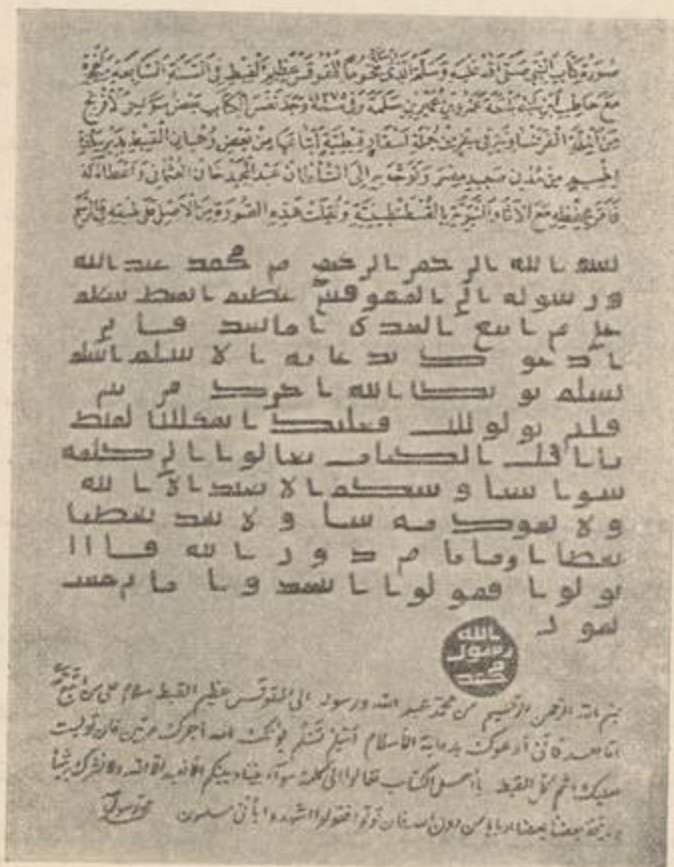 صورة كتاب النبي صلى الله عليه وسلم الذي مختوما للمقوقس عظيم القبط في السنة السابعة
مع حاطب ابن بلتعة عمرو بن عمير بن سلمة وفي وجد نفس الكتاب بعض الافرنج
الفرنساوية بين جملة اسفار قبطية من بعض رهبان القبط بدير
اخميم من مدن صعيد مصر وتوجه به الى السلطان عبد المجيد خان العثماني واعطاه له
فامر بحفظه مع الاثار النبوية بالقسطنطينية ونقلت هذه الصورة من الاصل
بسم الله الرحمن الرحيم من محمد عبد الله
ورسوله الى المقوقس عظيم القبط سلام
على من اتبع الهدى اما بعد فانى
ادعوك بدعاية الاسلام اسلم
تسلم يوتك الله اجرك مرتين
فان توليت فعليك القبط
يا اهل الكتاب تعالوا الى كلمة
سوا بيننا وبينكم الا نعبد الا الله
ولا نشرك به شيا ولا يتخذ بعضنا
بعضا اربابا من دون الله فان
تولوا فقولوا اشهدوا بانا مسـ
لمون
الله
رسول
محمد
بسم الله الرحمن الرحيم من محمد عبد الله ورسوله الى المقوقس عظيم القبط سلام على من اتبع
اما بعد فانى أدعوك بدعاية الأسلام أسلم تسلم يؤتك الله أجرك مرتين فان توليت
فعليك اثم كل القبط يا أهل الكتاب تعالوا الى كلمة سواء بيننا وبينكم ألا نعبد الا الله ولا نشرك به شيأ
ولا يتخذ بعضنا بعضا اربابا من دون الله فان تولوا فقولوا اشهدوا بأنا مسلمون محمد رسول الله